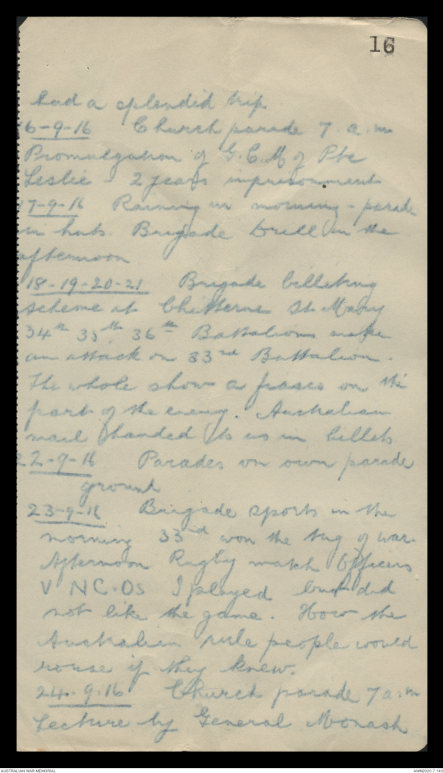 16
had a splendid trip
16-9-16 Church parade 7 a.m
Promulgation of G.C.M of Pte
Leslie 2 years imprisonment
17-9-16 Raining in morning - parade
in huts. Brigade Drill in the
afternoon
18-19-20-21 Brigade billeting
scheme at Chitterne St Mary
34th 35th 36th Battalions make
an attack on 33rd Battalion.
The whole show a on the
part of the enemy. Australian
mail handed to us in billets
22-9-16 Parades on own parade
ground
23-9-16 Brigade sports in the
morning 33rd won the tug of war.
Afternoon Rugby match Officers
V NC.Os I played but did
not like the game. How the
Australian rule people would
rouse if they knew.
24-9-16 Church parade 7 a.m
Lecture by General Monash
AUSTRALIAN WAR MEMORIAL